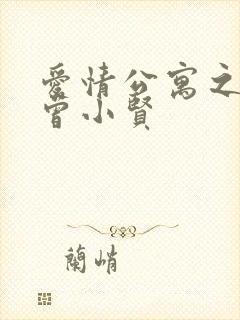 愛情公寓之
曾小賢
蘭峭